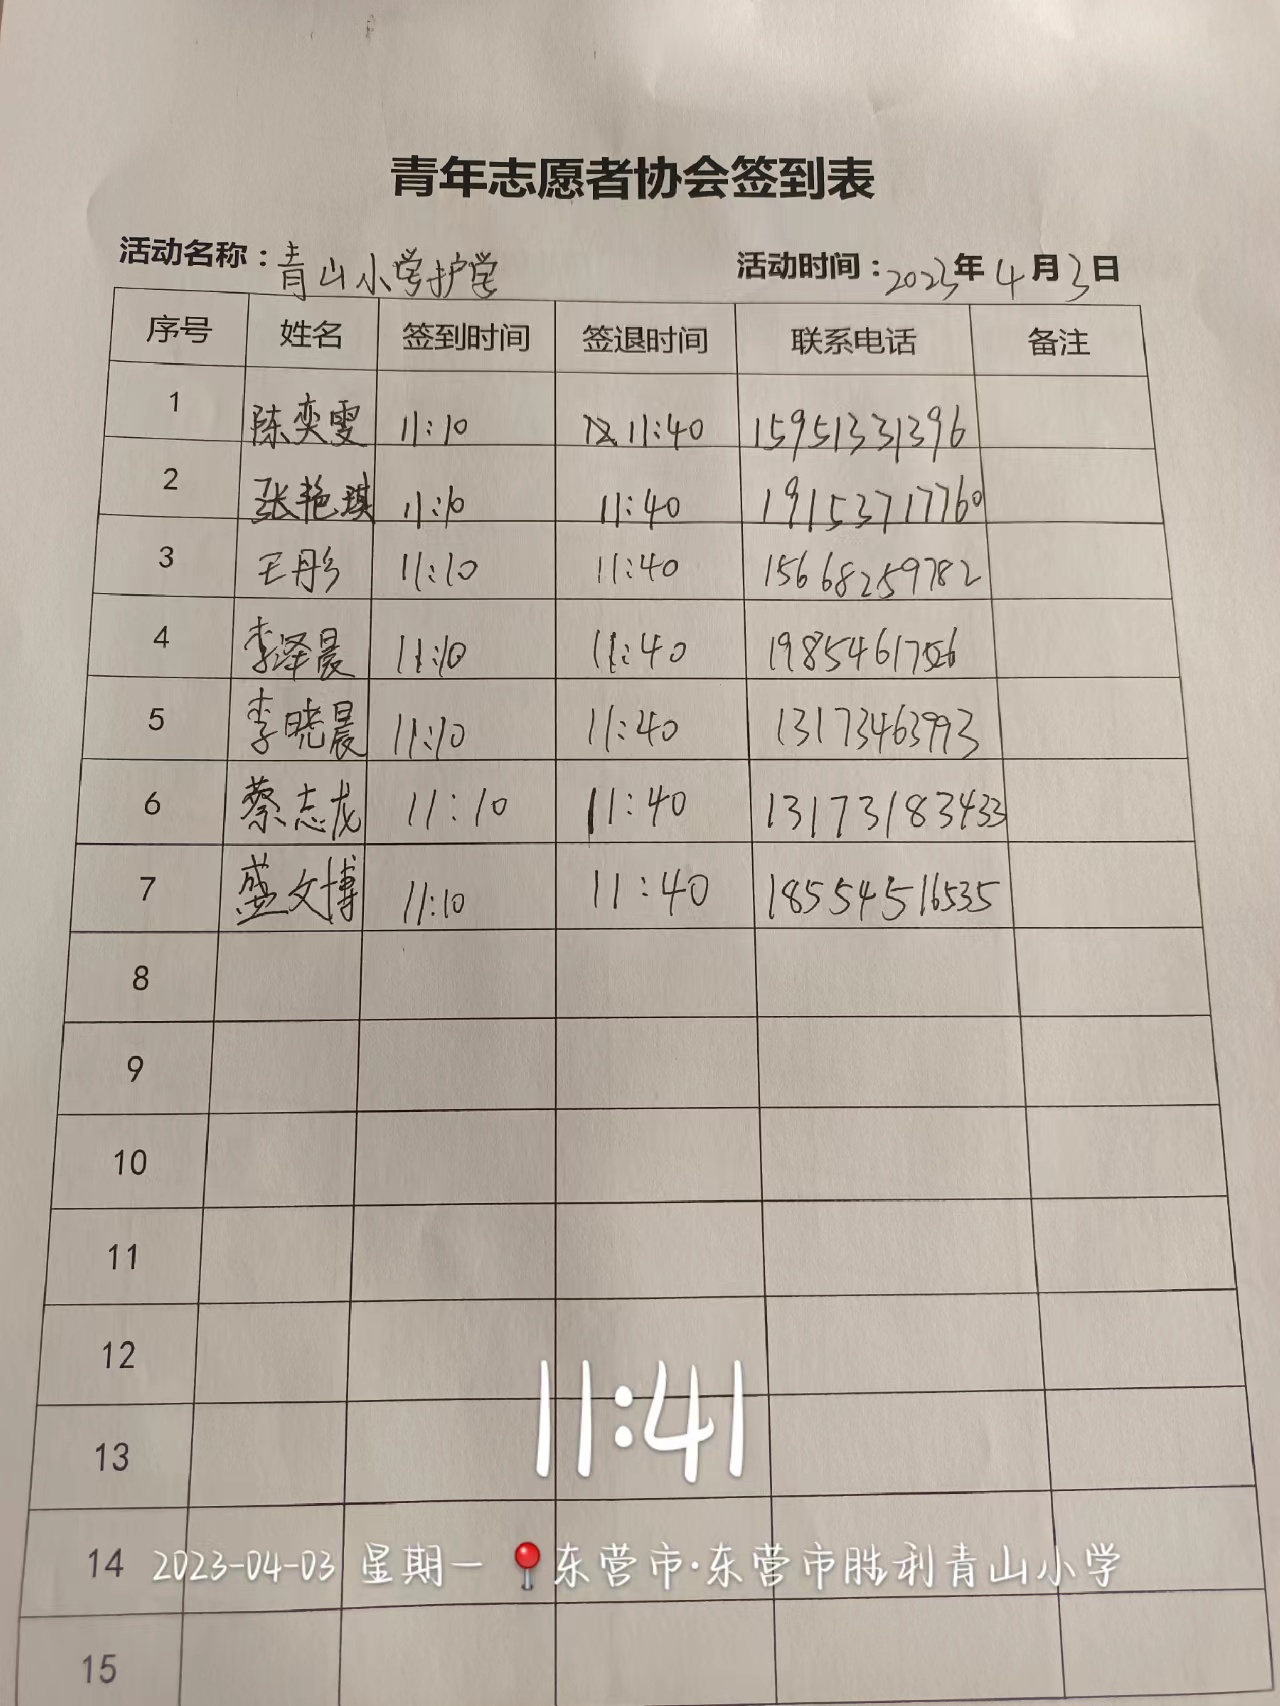 青年志愿者协会签到表
活动名称：青山小学护学 活动时间：2023年4月3日
序号 姓名 签到时间 签退时间 联系电话 备注
1 陈奕雯 11:10 11:40 15951331396
2 张艳琪 11:10 11:40 19153717760
3 王彤 11:10 11:40 15668259782
4 李泽晨 11:10 11:40
5 李晓晨 11:10 11:40 13173463993
6 蔡志龙 11:10 11:40 13173183433
7 盛文博 11:10 11:40 18554516535
8
9
10
11
12
11:41
13
14
2023-04-03 星期一 东营市·东营市胜利青山小学
15